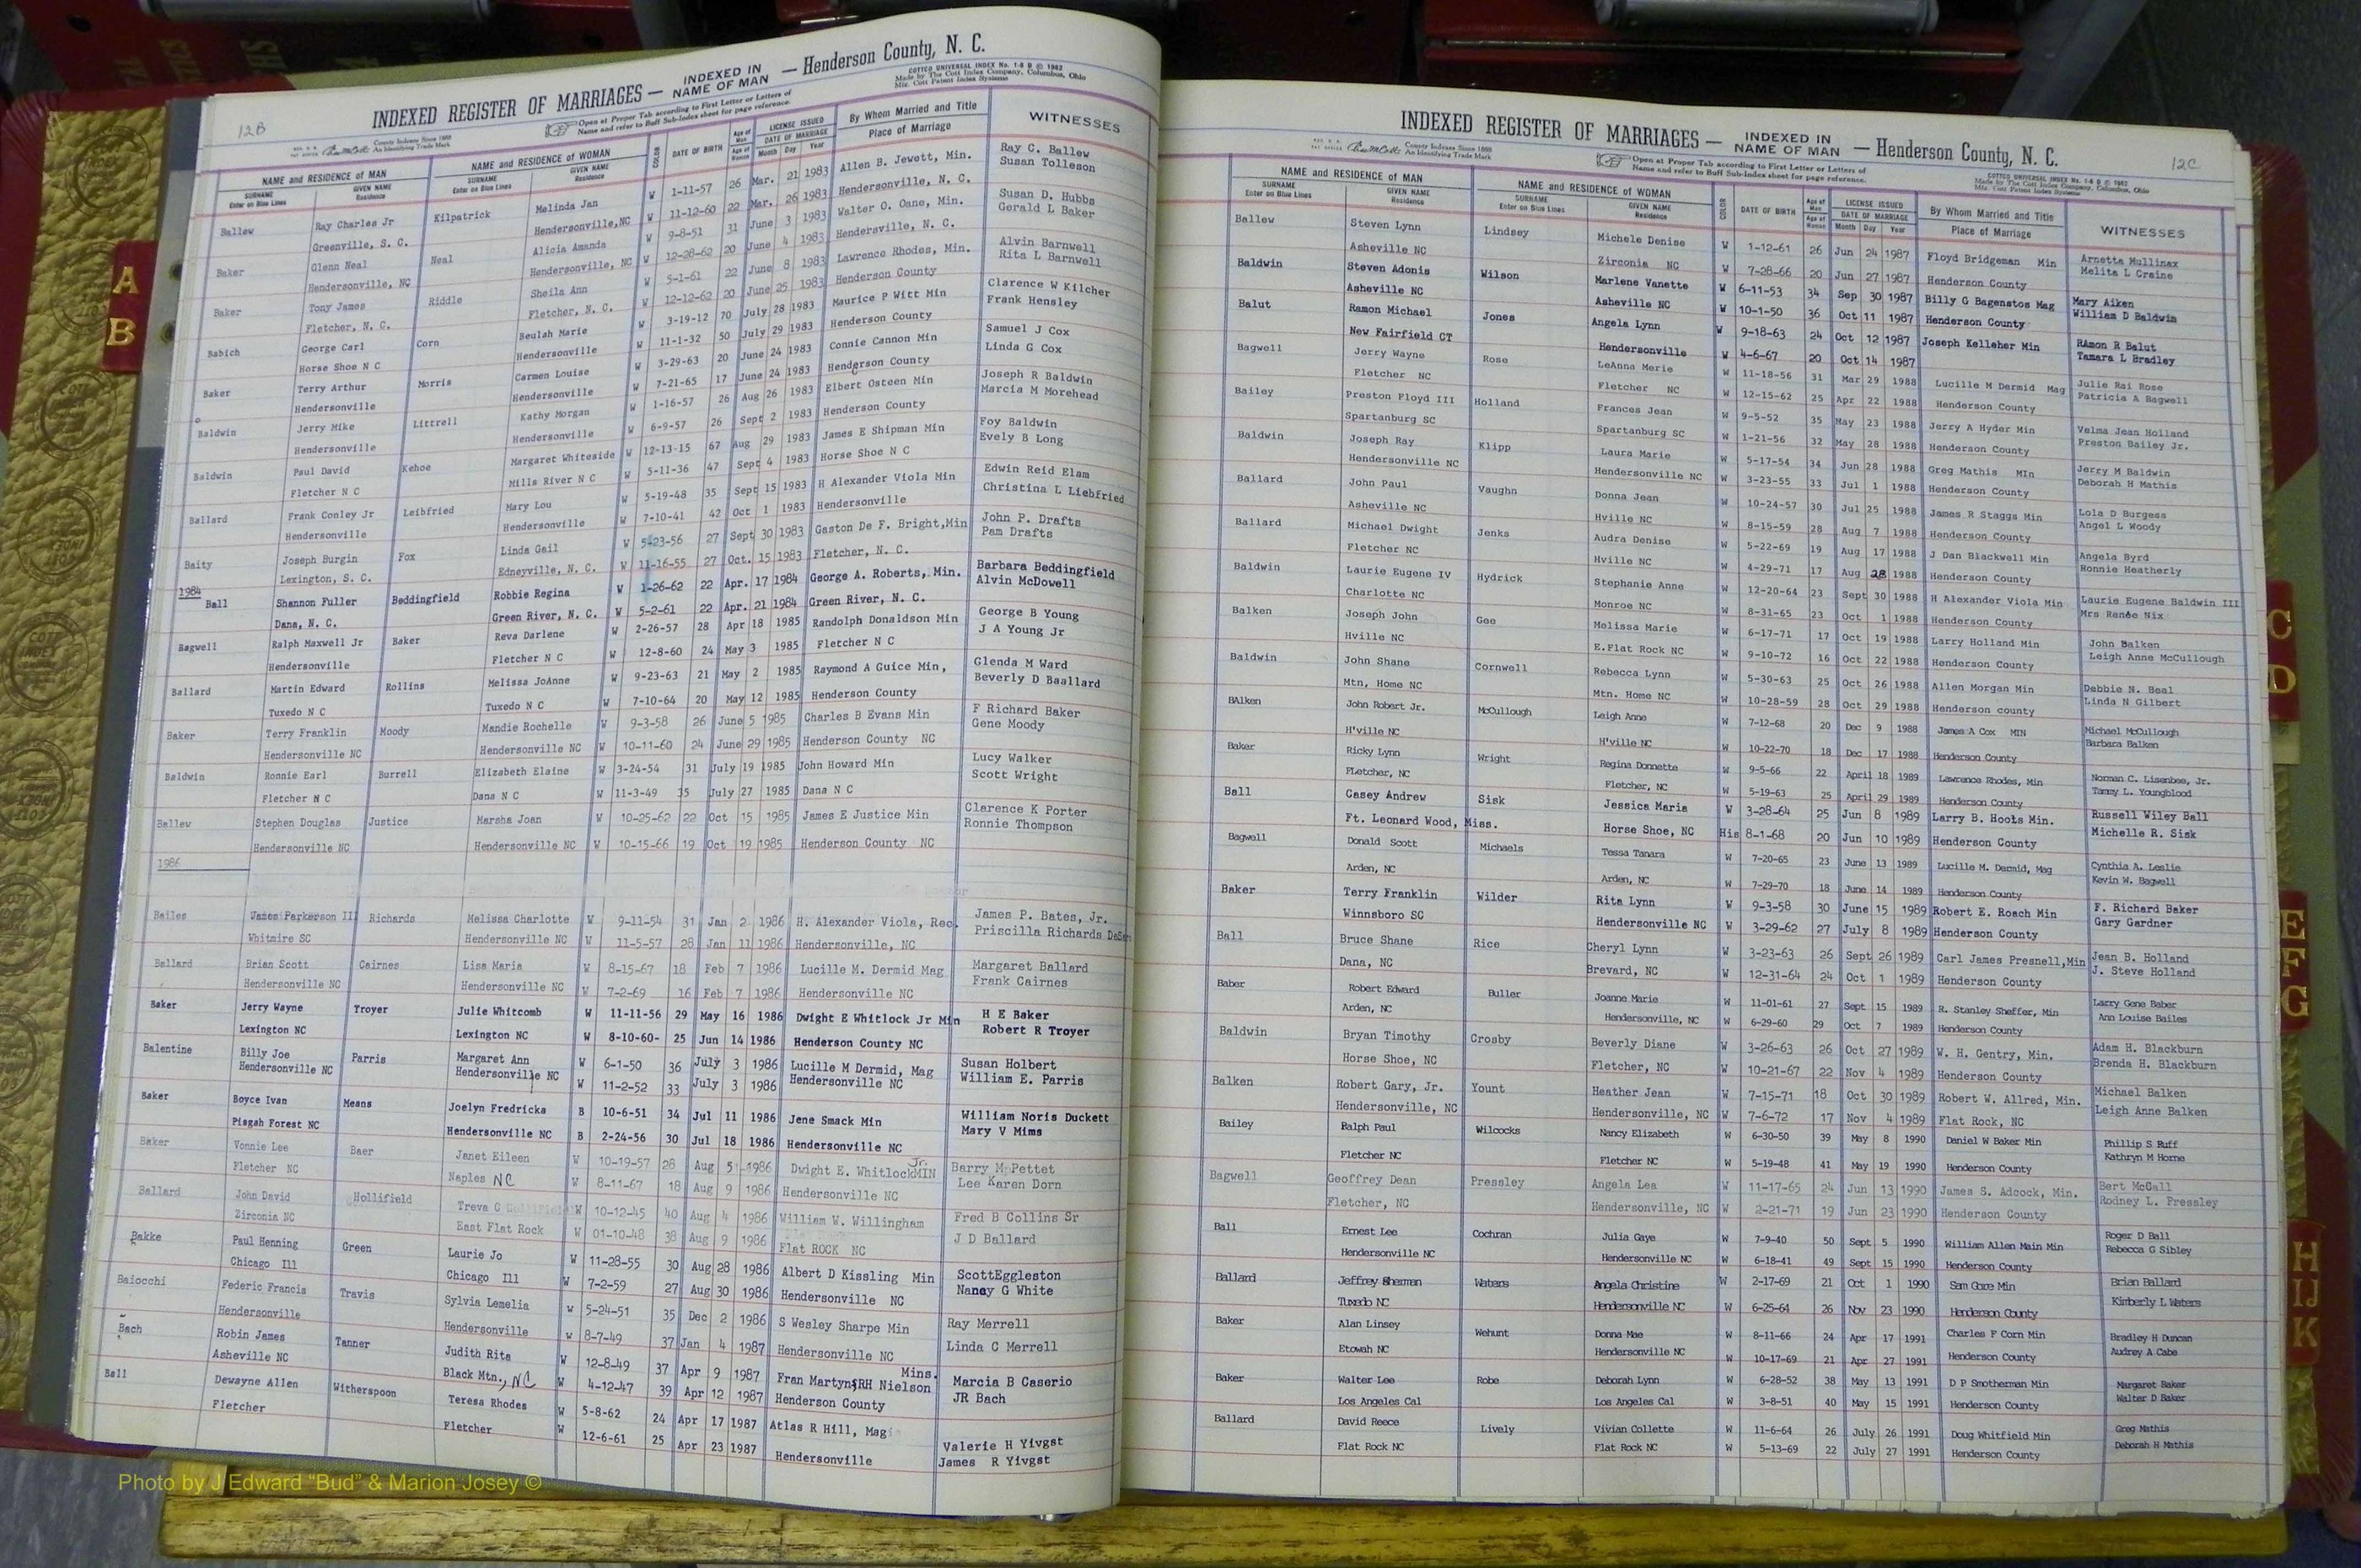 12B
INDEXED REGISTER OF MARRIAGES — INDEXED IN NAME OF MAN — Henderson County, N. C.
Open at Proper Tab according to First Letter or Letters of
Name and refer to Buff Sub-Index sheet for page reference.
COTTCO UNIVERSAL INDEX No. 1-8 B © 1962
Made by The Cott Index Company, Columbus, Ohio
County Indexes Since 1888
An Identifying Trade Mark
NAME and RESIDENCE OF MAN NAME and RESIDENCE OF WOMAN COLOR DATE OF BIRTH Age of Man LICENSE ISSUED By Whom Married and Title WITNESSES
SURNAME Enter on Blue Lines GIVEN NAME Residence SURNAME Enter on Blue Lines GIVEN NAME Residence Age of Woman DATE OF MARRIAGE Month Day Year Place of Marriage
Ballew Ray Charles Jr Kilpatrick Melinda Jan W 1-11-57 26 Mar. 21 1983 Allen B. Jewett, Min. Ray C. Ballew
Greenville, S. C. Hendersonville,NC W 11-12-60 22 Mar. 26 1983 Hendersonville, N. C. Susan Tolleson
Baker Glenn Neal Neal Alicia Amanda W 9-8-51 31 June 3 1983 Walter O. Cane, Min. Susan D. Hubbs
Hendersonville, NC Hendersonville, NC W 12-28-62 20 June 4 1983 Hendersville, N. C. Gerald L Baker
Baker Tony James Riddle Sheila Ann W 5-1-61 22 June 8 1983 Lawrence Rhodes, Min. Alvin Barnwell
Fletcher, N. C. Fletcher, N. C. W 12-12-62 20 June 25 1983 Henderson County Rita L Barnwell
Babich George Carl Corn Beulah Marie W 3-19-12 70 July 28 1983 Maurice P Witt Min Clarence W Kilcher
Horse Shoe N C Hendersonville W 11-1-32 50 July 29 1983 Henderson County Frank Hensley
Baker Terry Arthur Morris Carmen Louise W 3-29-63 20 June 24 1983 Connie Cannon Min Samuel J Cox
Hendersonville Hendersonville W 7-21-65 17 June 24 1983 Henderson County Linda G Cox
Baldwin Jerry Mike Littrell Kathy Morgan W 1-16-57 26 Aug 26 1983 Elbert Osteen Min Joseph R Baldwin
Hendersonville Hendersonville W 6-9-57 26 Sept 2 1983 Henderson County Marcia M Morehead
Baldwin Paul David Kehoe Margaret Whiteside W 12-13-15 67 Aug 29 1983 James E Shipman Min Foy Baldwin
Fletcher N C Mills River N C W 5-11-36 47 Sept 4 1983 Horse Shoe N C Evely B Long
Ballard Frank Conley Jr Leibfried Mary Lou W 5-19-48 35 Sept 15 1983 H Alexander Viola Min Edwin Reid Elam
Hendersonville Hendersonville W 7-10-41 42 Oct 1 1983 Hendersonville Christina L Liebfried
Baity Joseph Burgin Fox Linda Gail W 5-23-56 27 Sept 30 1983 Gaston De F. Bright,Min John P. Drafts
Lexington, S. C. Edneyville, N. C. W 11-16-55 27 Oct. 15 1983 Fletcher, N. C. Pam Drafts
1984
Ball Shannon Fuller Beddingfield Robbie Regina W 1-26-62 22 Apr. 17 1984 George A. Roberts, Min. Barbara Beddingfield
Dana, N. C. Green River, N. C. W 5-2-61 22 Apr. 21 1984 Green River, N. C. Alvin McDowell
Bagwell Ralph Maxwell Jr Baker Reva Darlene W 2-26-57 28 Apr 18 1985 Randolph Donaldson Min George B Young
Hendersonville Fletcher N C W 12-8-60 24 May 3 1985 Fletcher N C J A Young Jr
Ballard Martin Edward Rollins Melissa JoAnne W 9-23-63 21 May 2 1985 Raymond A Guice Min, Glenda M Ward
Tuxedo N C Tuxedo N C W 7-10-64 20 May 12 1985 Henderson County Beverly D Baallard
Baker Terry Franklin Moody Mandie Rochelle W 9-3-58 26 June 5 1985 Charles B Evans Min F Richard Baker
Hendersonville NC Hendersonville NC W 10-11-60 24 June 29 1985 Henderson County NC Gene Moody
Baldwin Ronnie Earl Burrell Elizabeth Elaine W 3-24-54 31 July 19 1985 John Howard Min Lucy Walker
Fletcher N C Dana N C W 11-3-49 35 July 27 1985 Dana N C Scott Wright
Ballew Stephen Douglas Justice Marsha Joan W 10-25-62 22 Oct 15 1985 James E Justice Min Clarence K Porter
Hendersonville NC Hendersonville NC W 10-15-66 19 Oct 19 1985 Henderson County NC Ronnie Thompson
1986
Bailes James Parkerson III Richards Melissa Charlotte W 9-11-54 31 Jan 2 1986 H. Alexander Viola, Rec. James P. Bates, Jr.
Whitmire SC Hendersonville NC W 11-5-57 28 Jan 11 1986 Hendersonville, NC Priscilla Richards
Ballard Brian Scott Cairnes Lisa Maria W 8-15-67 18 Feb 7 1986 Lucille M. Dermid Mag Margaret Ballard
Hendersonville NC Hendersonville NC W 7-2-69 16 Feb 7 1986 Hendersonville NC Frank Cairnes
Baker Jerry Wayne Troyer Julie Whitcomb W 11-11-56 29 May 16 1986 Dwight E Whitlock Jr Min H E Baker
Lexington NC Lexington NC W 8-10-60- 25 Jun 14 1986 Henderson County NC Robert R Troyer
Balentine Billy Joe Parris Margaret Ann W 6-1-50 36 July 3 1986 Lucille M Dermid, Mag Susan Holbert
Hendersonville NC Hendersonville NC W 11-2-52 33 July 3 1986 Hendersonville NC William E. Parris
Baker Boyce Ivan Means Joelyn Fredricka B 10-6-51 34 Jul 11 1986 Jene Smack Min William Noris Duckett
Pisgah Forest NC Hendersonville NC B 2-24-56 30 Jul 18 1986 Hendersonville NC Mary V Mims
Baker Vonnie Lee Baer Janet Eileen W 10-19-57 28 Aug 5 1986 Dwight E. Whitlock Jr. MIN Barry M Pettet
Fletcher NC Naples NC W 8-11-67 18 Aug 9 1986 Hendersonville NC Lee Karen Dorn
Ballard John David Hollifield Treva C W 10-12-45 40 Aug 4 1986 William W. Willingham Fred B Collins Sr
Zirconia NC East Flat Rock W 01-10-48 38 Aug 9 1986 Flat ROCK NC J D Ballard
Bakke Paul Henning Green Laurie Jo W 11-28-55 30 Aug 28 1986 Albert D Kissling Min ScottEggleston
Chicago Ill Chicago Ill W 7-2-59 27 Aug 30 1986 Hendersonville NC Nancy G White
Baiocchi Federic Francis Travis Sylvia Lemelia w 5-24-51 35 Dec 2 1986 S Wesley Sharpe Min Ray Merrell
Hendersonville Hendersonville w 8-7-49 37 Jan 4 1987 Hendersonville NC Linda C Merrell
Bach Robin James Tanner Judith Rita W 12-8-49 37 Apr 9 1987 Fran Martyn$RH Nielson Mins. Marcia B Caserio
Asheville NC Black Mtn., NC W 4-12-47 39 Apr 12 1987 Henderson County JR Bach
Ball Dewayne Allen Witherspoon Teresa Rhodes W 5-8-62 24 Apr 17 1987 Atlas R Hill, Mag Valerie H Yivgst
Fletcher Fletcher W 12-6-61 25 Apr 23 1987 Hendersonville James R Yivgst
12C
INDEXED REGISTER OF MARRIAGES — INDEXED IN NAME OF MAN — Henderson County, N. C.
Open at Proper Tab according to First Letter or Letters of
Name and refer to Buff Sub-Index sheet for page reference.
NAME and RESIDENCE OF MAN NAME and RESIDENCE OF WOMAN COLOR DATE OF BIRTH Age of Man LICENSE ISSUED By Whom Married and Title WITNESSES
SURNAME Enter on Blue Lines GIVEN NAME Residence SURNAME Enter on Blue Lines GIVEN NAME Residence Age of Woman DATE OF MARRIAGE Month Day Year Place of Marriage
Ballew Steven Lynn Lindsey Michele Denise W 1-12-61 26 Jun 24 1987 Floyd Bridgeman Min Arnetta Mullinax
Asheville NC Zirconia NC W 7-28-66 20 Jun 27 1987 Henderson County Melita L Craine
Baldwin Steven Adonis Wilson Marlene Vanette W 6-11-53 34 Sep 30 1987 Billy G Bagenstos Mag Mary Aiken
Asheville NC Asheville NC W 10-1-50 36 Oct 11 1987 Henderson County William D Baldwin
Balut Ramon Michael Jones Angela Lynn W 9-18-63 24 Oct 12 1987 Joseph Kelleher Min RAmon R Balut
New Fairfield CT Hendersonville W 4-6-67 20 Oct 14 1987 Tamara L Bradley
Bagwell Jerry Wayne Rose LeAnna Merie W 11-18-56 31 Mar 29 1988 Lucille M Dermid Mag Julie Rai Rose
Fletcher NC Fletcher NC W 12-15-62 25 Apr 22 1988 Henderson County Patricia A Bagwell
Bailey Preston Floyd III Holland Frances Jean W 9-5-52 35 May 23 1988 Jerry A Hyder Min Velma Jean Holland
Spartanburg SC Spartanburg SC W 1-21-56 32 May 28 1988 Henderson County Preston Bailey Jr.
Baldwin Joseph Ray Klipp Laura Marie W 5-17-54 34 Jun 28 1988 Greg Mathis MIn Jerry M Baldwin
Hendersonville NC Hendersonville NC W 3-23-55 33 Jul 1 1988 Henderson County Deborah H Mathis
Ballard John Paul Vaughn Donna Jean W 10-24-57 30 Jul 25 1988 James R Staggs Min Lola D Burgess
Asheville NC Hville NC W 8-15-59 28 Aug 7 1988 Henderson County Angel L Woody
Ballard Michael Dwight Jenks Audra Denise W 5-22-69 19 Aug 17 1988 J Dan Blackwell Min Angela Byrd
Fletcher NC Hville NC W 4-29-71 17 Aug 28 1988 Henderson County Ronnie Heatherly
Baldwin Laurie Eugene IV Hydrick Stephanie Anne W 12-20-64 23 Sept 30 1988 H Alexander Viola Min Laurie Eugene Baldwin III
Charlotte NC Monroe NC W 8-31-65 23 Oct 1 1988 Henderson County Mrs Renee Nix
Balken Joseph John Gee Melissa Marie W 6-17-71 17 Oct 19 1988 Larry Holland Min John Balken
Hville NC E.Flat Rock NC W 9-10-72 16 Oct 22 1988 Henderson County Leigh Anne McCullough
Baldwin John Shane Cornwell Rebecca Lynn W 5-30-63 25 Oct 26 1988 Allen Morgan Min Debbie N. Beal
Mtn, Home NC Mtn. Home NC W 10-28-59 28 Oct 29 1988 Henderson county Linda N Gilbert
BAlken John Robert Jr. McCullough Leigh Anne W 7-12-68 20 Dec 9 1988 James A Cox MIN Michael McCullough
H'ville NC H'ville NC W 10-22-70 18 Dec 17 1988 Henderson County Barbara Balken
Baker Ricky Lynn Wright Regina Donnette W 9-5-66 22 April 18 1989 Lawrence Rhodes, Min Norman C. Lisenbee, Jr.
Fletcher, NC Fletcher, NC W 5-19-63 25 April 29 1989 Henderson County Tammy L. Youngblood
Ball Casey Andrew Sisk Jessica Maria W 3-28-64 25 Jun 8 1989 Larry B. Hooks Min. Russell Wiley Ball
Ft. Leonard Wood, Miss. Horse Shoe, NC His 8-1-68 20 Jun 10 1989 Henderson County Michelle R. Sisk
Bagwell Donald Scott Michaels Tessa Tanara W 7-20-65 23 June 13 1989 Lucille M. Dermid, Mag Cynthia A. Leslie
Arden, NC Arden, NC W 7-29-70 18 June 14 1989 Henderson County Kevin W. Bagwell
Baker Terry Franklin Wilder Rita Lynn W 9-3-58 30 June 15 1989 Robert E. Roach Min F. Richard Baker
Winnsboro SC Hendersonville NC W 3-29-62 27 July 8 1989 Henderson County Gary Gardner
Ball Bruce Shane Rice Cheryl Lynn W 3-23-63 26 Sept 26 1989 Carl James Presnell,Min Jean B. Holland
Dana, NC Brevard, NC W 12-31-64 24 Oct 1 1989 Henderson County J. Steve Holland
Baber Robert Edward Buller Joanne Marie W 11-01-61 27 Sept 15 1989 R. Stanley Sheffer, Min Larry Gene Baber
Arden, NC Hendersonville, NC W 6-29-60 29 Oct 7 1989 Henderson County Ann Louise Bailes
Baldwin Bryan Timothy Crosby Beverly Diane W 3-26-63 26 Oct 27 1989 W. H. Gentry, Min. Adam H. Blackburn
Horse Shoe, NC Fletcher, NC W 10-21-67 22 Nov 4 1989 Henderson County Brenda H. Blackburn
Balken Robert Gary, Jr. Yount Heather Jean W 7-15-71 18 Oct 30 1989 Robert W. Allred, Min. Michael Balken
Hendersonville, NC Hendersonville, NC W 7-6-72 17 Nov 4 1989 Flat Rock, NC Leigh Anne Balken
Bailey Ralph Paul Wilcocks Nancy Elizabeth W 6-30-50 39 May 8 1990 Daniel W Baker Min Phillip S Ruff
Fletcher NC Fletcher NC W 5-19-48 41 May 19 1990 Henderson County Kathryn M Horne
Bagwell Geoffrey Dean Pressley Angela Lea W 11-17-65 24 Jun 13 1990 James S. Adcock, Min. Bert McCall
Fletcher, NC Hendersonville, NC W 2-21-71 19 Jun 23 1990 Henderson County Rodney L. Pressley
Ball Ernest Lee Cochran Julia Gaye W 7-9-40 50 Sept 5 1990 William Allen Main Min Roger D Ball
Hendersonville NC Hendersonville NC W 6-18-41 49 Sept 15 1990 Henderson County Rebecca G Sibley
Ballard Jeffrey Sherman Waters Angela Christine W 2-17-69 21 Oct 1 1990 Sam Gore Min Brian Ballard
Tuxedo NC Hendersonville NC W 6-25-64 26 Nov 23 1990 Henderson County Kimberly L Waters
Baker Alan Linsey Wehunt Donna Mae W 8-11-66 24 Apr 17 1991 Charles F Corn Min Bradley H Duncan
Etowah NC Hendersonville NC W 10-17-69 21 Apr 27 1991 Henderson County Audrey A Cabe
Baker Walter Lee Robe Deborah Lynn W 6-28-52 38 May 13 1991 D P Smotherman Min Margaret Baker
Los Angeles Cal Los Angeles Cal W 3-8-51 40 May 15 1991 Henderson County Walter D Baker
Ballard David Reece Lively Vivian Collette W 11-6-64 26 July 26 1991 Doug Whitfield Min Greg Mathis
Flat Rock NC Flat Rock NC W 5-13-69 22 July 27 1991 Henderson County Deborah H Mathis
A
B
C
D
E
F
G
H
IJ
K
Photo by J Edward “Bud” & Marion Josey ©